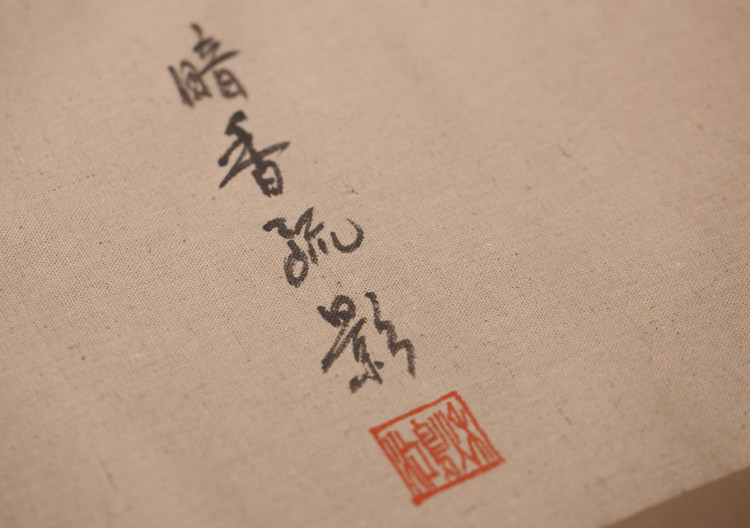 暗香疏影